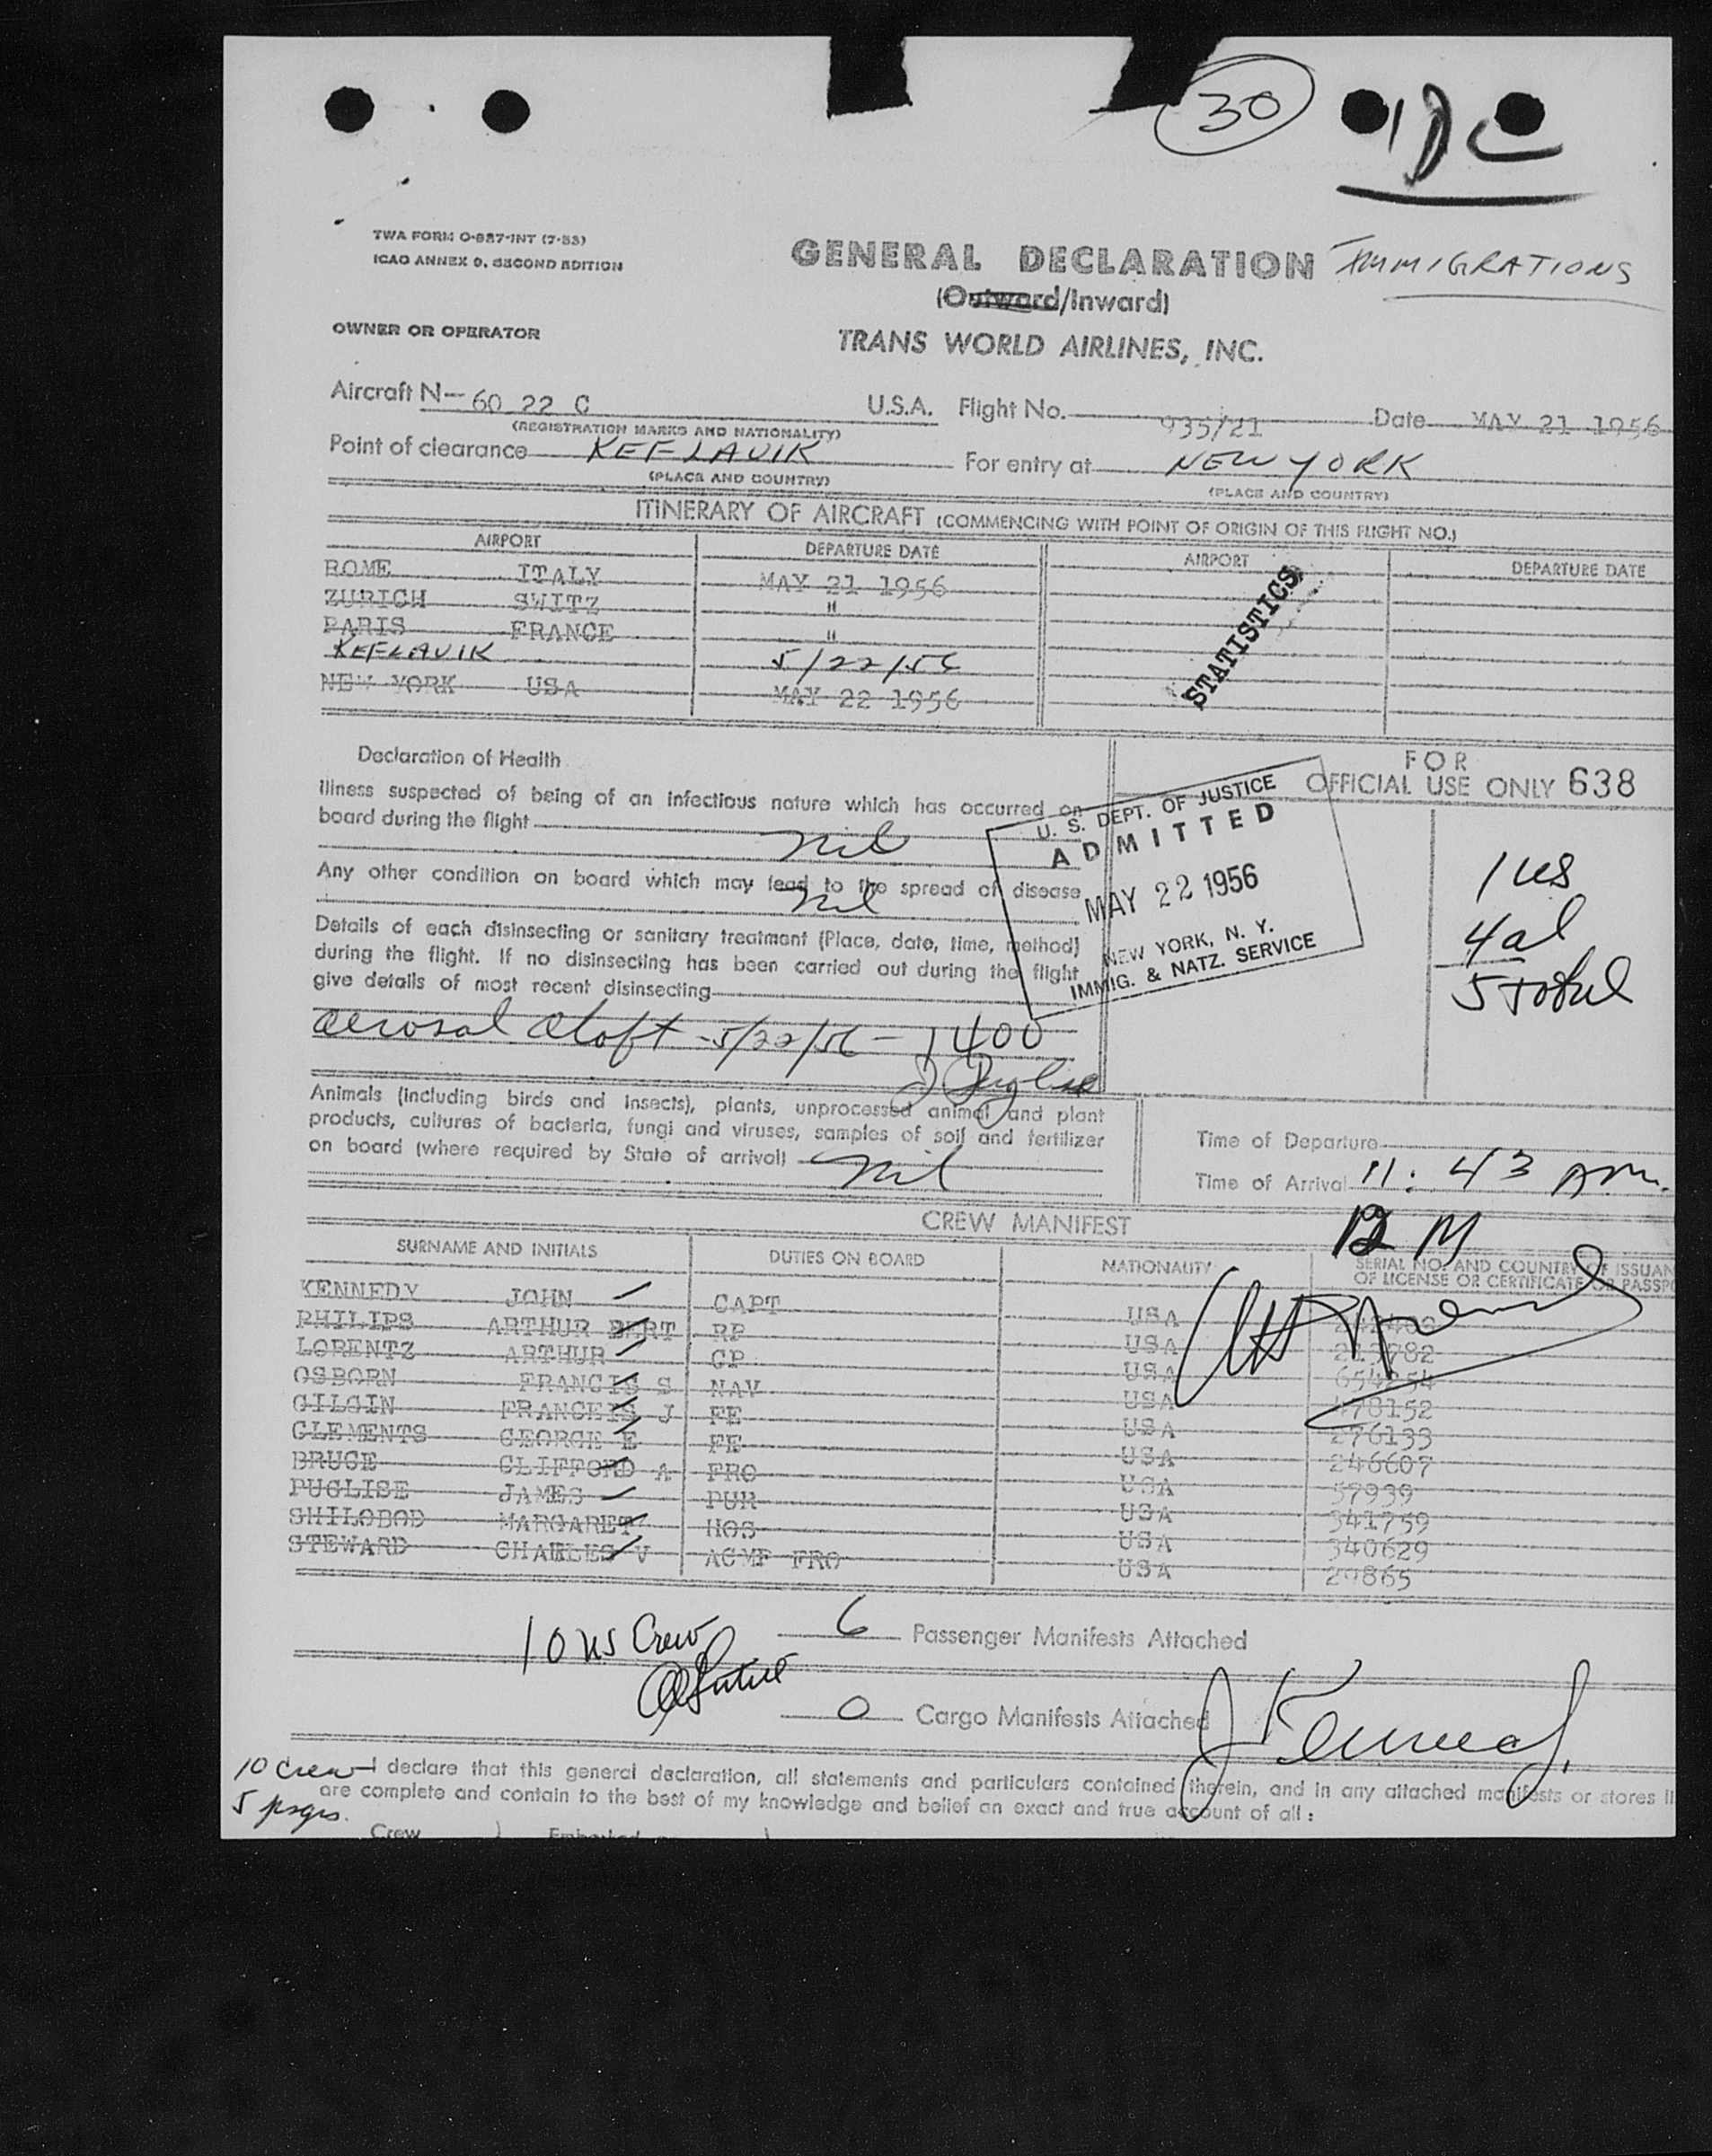 30
TWA FORM O-827-INT (7-53)
ICAO ANNEX 9, SECOND EDITION
GENERAL DECLARATION IMMIGRATIONS
(Outward/Inward)
OWNER OR OPERATOR
TRANS WORLD AIRLINES, INC.
Aircraft N- 60 22 C U.S.A. Flight No. 935/21 Date MAY 21 1956
(REGISTRATION MARKS AND NATIONALITY)
Point of clearance KEFLAVIK For entry at NEW YORK
(PLACE AND COUNTRY) (PLACE AND COUNTRY)
ITINERARY OF AIRCRAFT (COMMENCING WITH POINT OF ORIGIN OF THIS FLIGHT NO.)
AIRPORT DEPARTURE DATE AIRPORT DEPARTURE DATE
ROME ITALY MAY 21 1956
ZURICH SWITZ "
PARIS FRANCE "
KEFLAVIK 5/22/56
NEW YORK USA MAY 22 1956
STATISTICS
Declaration of Health
FOR
OFFICIAL USE ONLY 638
Illness suspected of being of an infectious nature which has occurred on
board during the flight nil
Any other condition on board which may lead to the spread of disease
nil
U. S. DEPT. OF JUSTICE
ADMITTED
MAY 22 1956
NEW YORK, N. Y.
IMMIG. & NATZ. SERVICE
1 us
4 al
5 total
Details of each disinsecting or sanitary treatment (Place, date, time, method)
during the flight. If no disinsecting has been carried out during the flight
give details of most recent disinsecting
aerosal aloft - 5/22/56 - 1400
J Puglise
Animals (including birds and insects), plants, unprocessed animal and plant
products, cultures of bacteria, fungi and viruses, samples of soil and fertilizer
on board (where required by State of arrival) nil
Time of Departure
Time of Arrival 11:43 AM.
CREW MANIFEST
SURNAME AND INITIALS DUTIES ON BOARD NATIONALITY SERIAL NO. AND COUNTRY OF ISSUAN
OF LICENSE OR CERTIFICATE OR PASSPO
KENNEDY JOHN CAPT USA
PHILIPS ARTHUR BERT RP USA
LORENTZ ARTHUR CP USA
OSBORN FRANCIS S NAV USA
GILGIN FRANCEIS J FE USA 276133
CLEMENTS GEORGE E FE USA 246607
BRUCE CLIFFORD A FRO USA 57939
PUGLISE JAMES PUR USA 341759
SHILOBOD MARGARET HOS USA 340629
STEWARD CHARLES V ACMF FRO USA 29865
10 US Crew
6 Passenger Manifests Attached
0 Cargo Manifests Attached
J Kennedy
10 Crew I declare that this general declaration, all statements and particulars contained therein, and in any attached manifests or stores li
5 psgrs. are complete and contain to the best of my knowledge and belief an exact and true account of all:
Crew Embarked